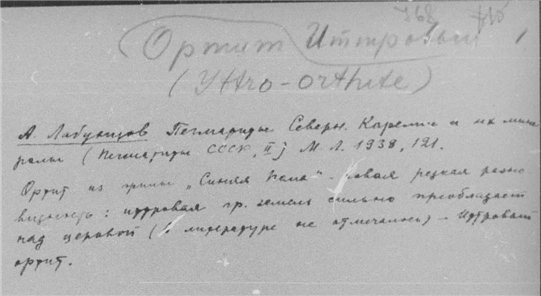 Ортит Иттровый
(Yttro-orthite)
А. Лабунцов Пегматиды Северн. Карелии и их мине
ралы (Пегматиды СССР, II) М. Л. 1939, 121.
Ортит из жилы „Синяя Пала" - новая редкая разно
видность: иттровая гр. земель сильно преобладает
над церовой (в литературе не отмечалось) - Иттровый
ортит.